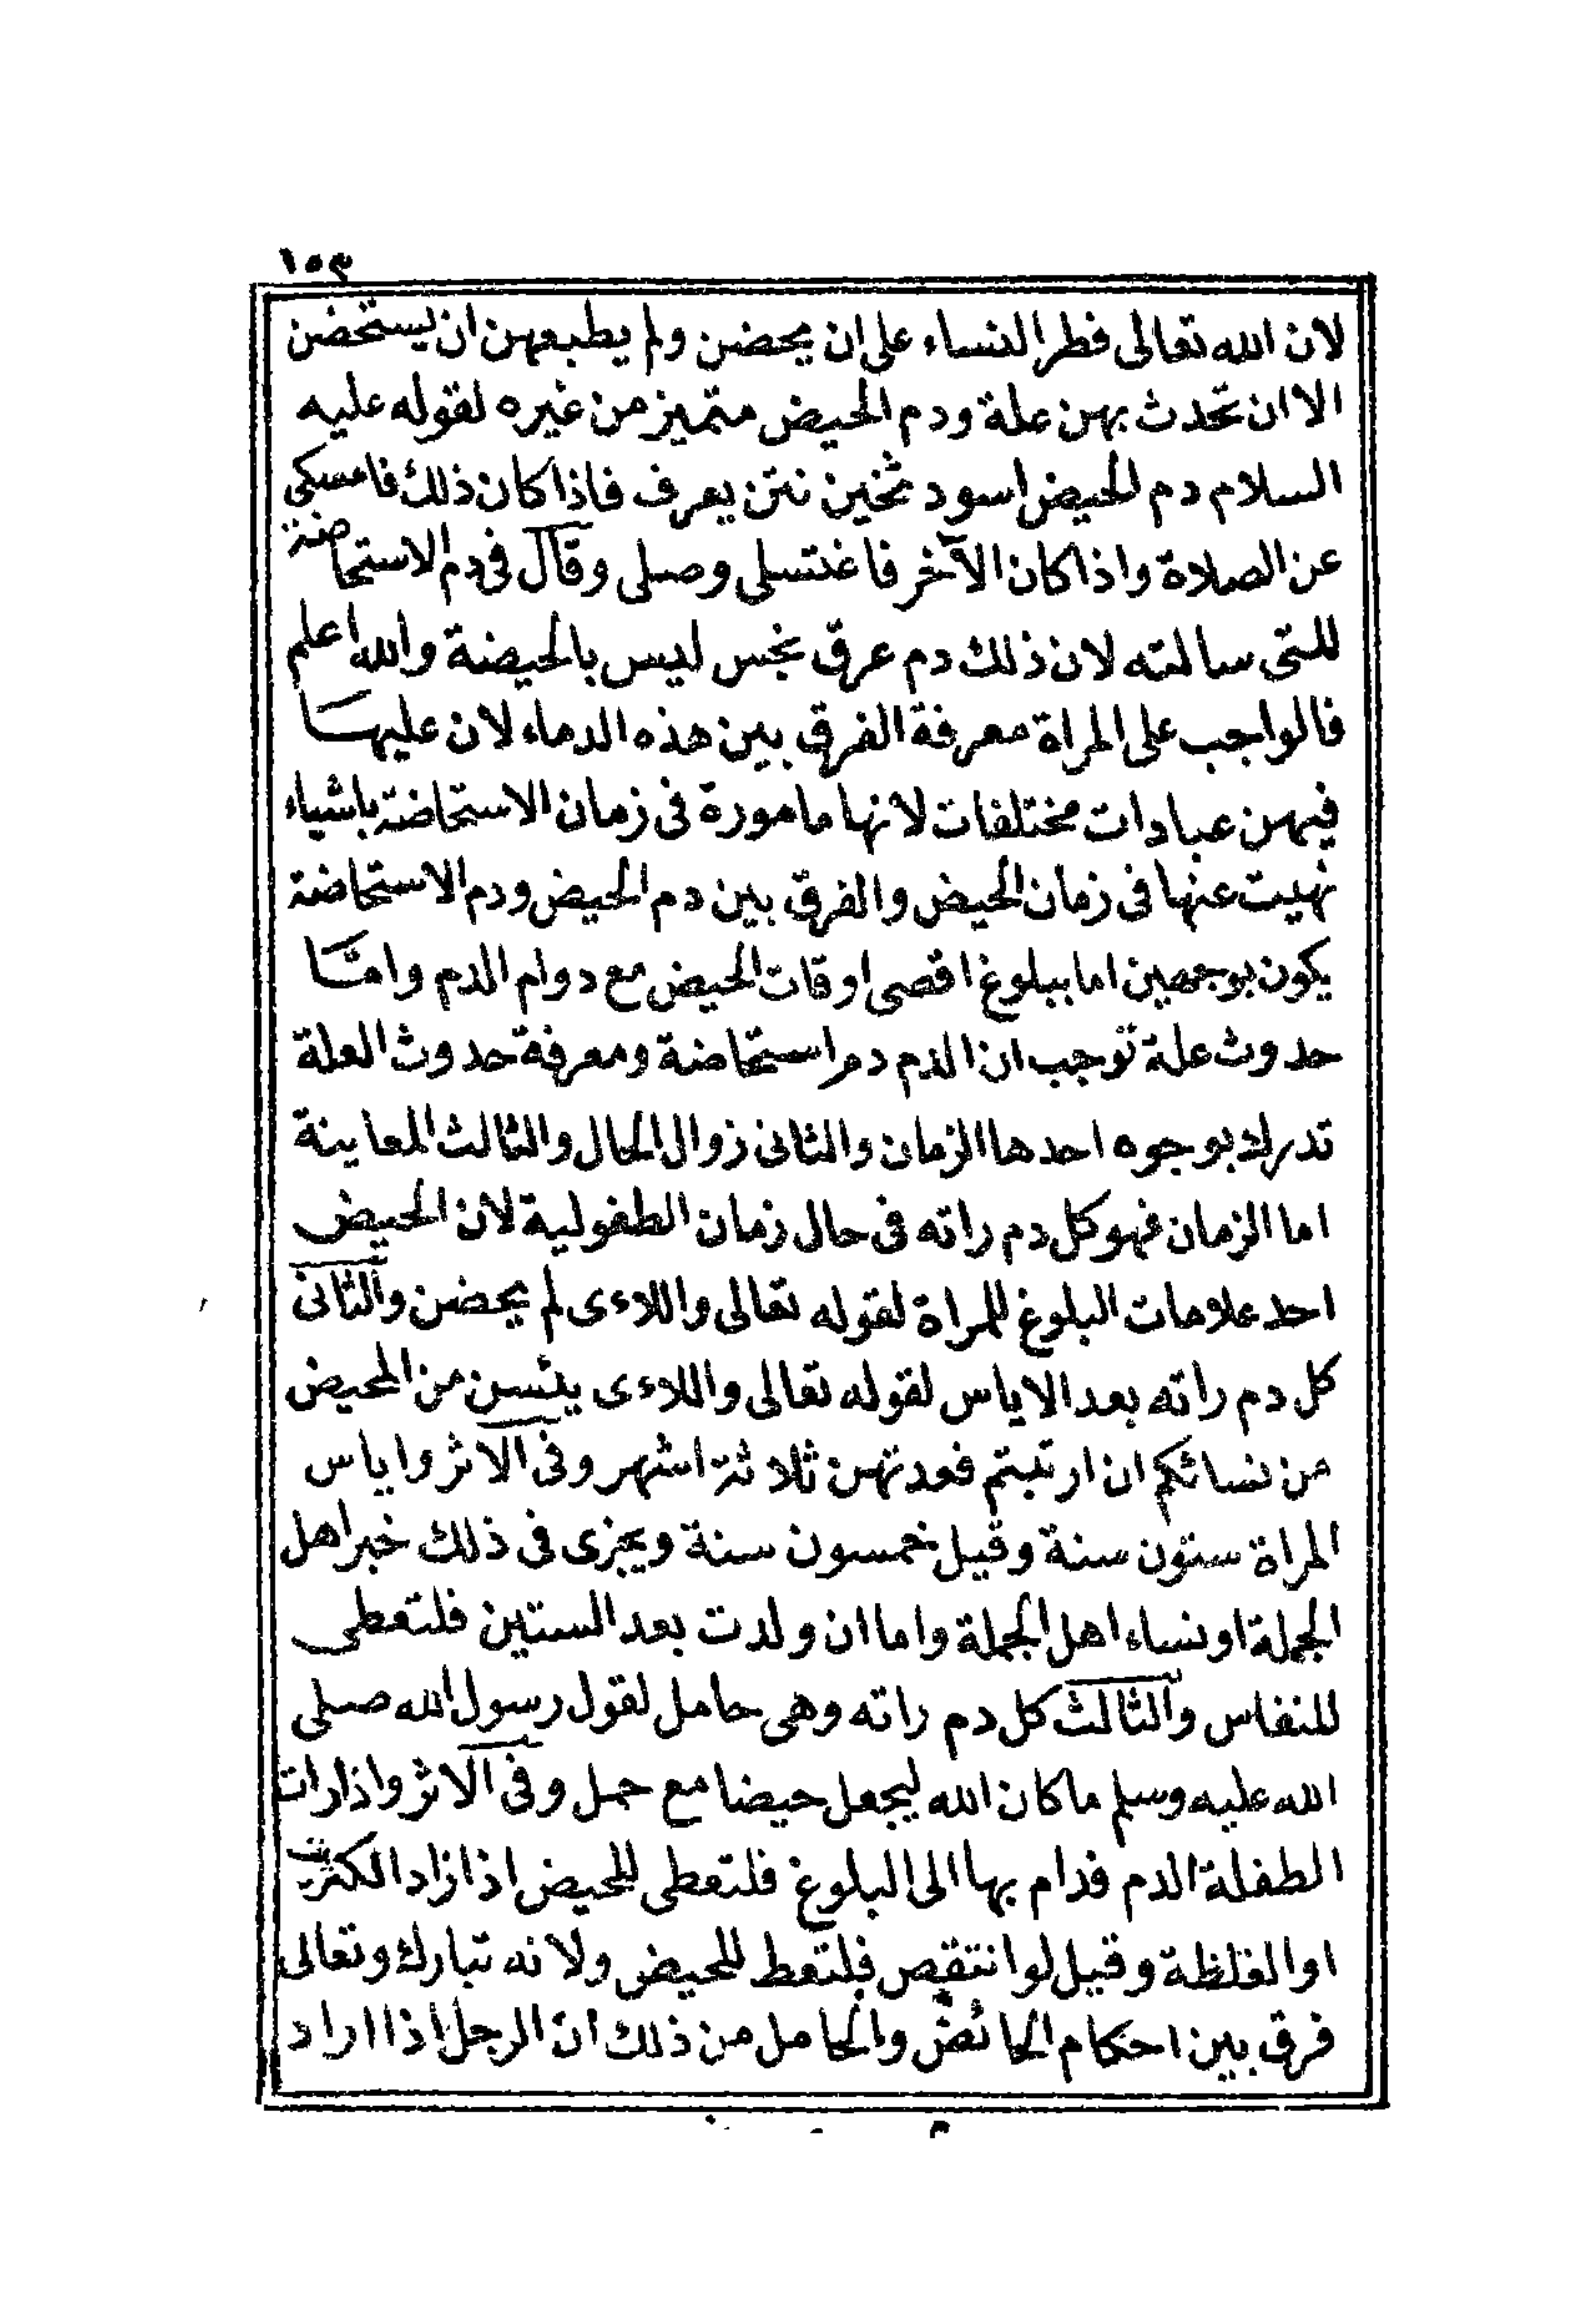 ١٥٣
لان الله تعالى فطر النساء على ان يحضن ولم يطبعهن ان يستحضن
الا ان تحدث بهن علة ودم الحيض متميز من غيره لقوله عليه
السلام دم الحيض اسود ثخين نتن يعرف فاذا كان ذلك فامسكى
عن الصلاة واذا كان الآخر فاغتسلى وصلى وقال فى دم الاستحاضة
للتى سالمته لان ذلك دم عرق نجس ليس بالحيضة والله اعلم
فالواجب على المراة معرفة الفرق بين هذه الدماء لان عليها
فيهن عبادات مختلفات لانها مامورة فى زمان الاستحاضة باشياء
نهيت عنها فى زمان الحيض والفرق بين دم الحيض ودم الاستحاضة
يكون بوجهين اما ببلوغ اقصى اوقات الحيض مع دوام الدم وامّا
حدوث علة توجب ان الدم دم استحاضة ومعرفة حدوث العلة
تدرك بوجوه احدها الزمان والثانى زوال الحال والثالث المعاينة
اما الزمان فهو كل دم راته فى حال زمان الطفولية لان الحيض
احد علامات البلوغ للمراة لقوله تعالى واللاءى لم يحضن والثانى
كل دم راته بعد الاياس لقوله تعالى واللاءى يئسن من المحيض
من نسائكم ان ارتبتم فعدتهن ثلاثة اشهر وفى الاثر واياس
المراة ستون سنة وقيل خمسون سنة ويجزى فى ذلك خبر اهل
الجملة او نساء اهل الجملة واما ان ولدت بعد الستين فلتعطى
للنفاس والثالث كل دم راته وهى حامل لقول رسول الله صلى
الله عليه وسلم ما كان الله ليجعل حيضا مع حمل وفى الاثر واذا رات
الطفلة الدم فدام بها الى البلوغ فلتعطى للحيض اذا زاد الكثرة
او الغلظة وقيل لو انتقص فلتعط للحيض ولانه تبارك وتعالى
فرق بين احكام الحائض والحامل من ذلك ان الرجل اذا اراد